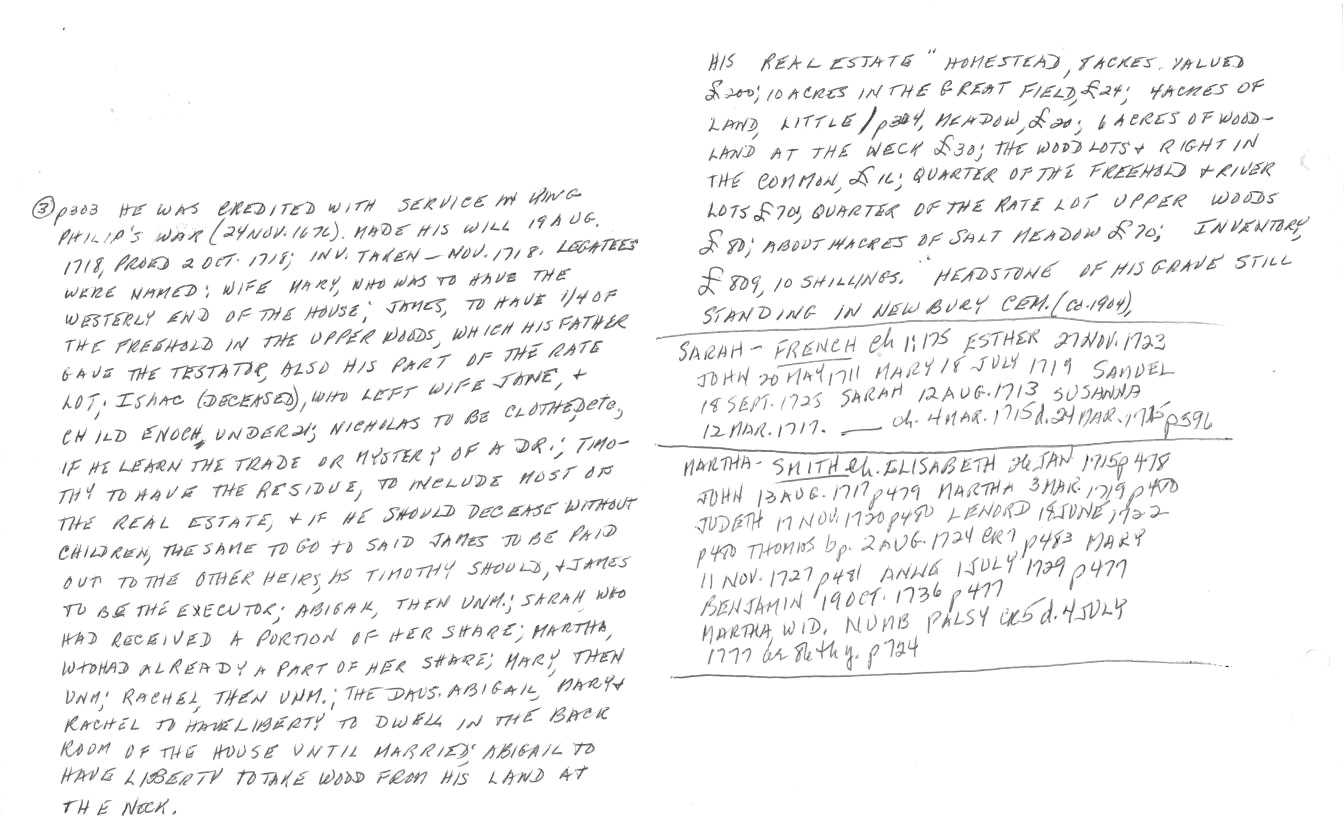 ③ p303 HE WAS CREDITED WITH SERVICE IN KING
PHILIP'S WAR (24 NOV. 1676). MADE HIS WILL 19 AUG.
1718, PROED 2 OCT. 1718; INV. TAKEN — NOV. 1718. LEGATEES
WERE NAMED: WIFE MARY, WHO WAS TO HAVE THE
WESTERLY END OF THE HOUSE; JAMES, TO HAVE 1/4 OF
THE FREEHOLD IN THE UPPER WOODS, WHICH HIS FATHER
GAVE THE TESTATOR, ALSO HIS PART OF THE RATE
LOT; ISAAC (DECEASED), WHO LEFT WIFE JANE, +
CHILD ENOCH, UNDER 21; NICHOLAS TO BE CLOTHED, ETC,
IF HE LEARN THE TRADE OR MYSTERY OF A DR.; TIMO-
THY TO HAVE THE RESIDUE, TO INCLUDE MOST OF
THE REAL ESTATE, + IF HE SHOULD DECEASE WITHOUT
CHILDREN, THE SAME TO GO TO SAID JAMES TO BE PAID
OUT TO THE OTHER HEIRS, AS TIMOTHY SHOULD, + JAMES
TO BE THE EXECUTOR; ABIGAIL, THEN UNM.; SARAH WHO
HAD RECEIVED A PORTION OF HER SHARE; MARTHA,
WHO HAD ALREADY A PART OF HER SHARE; MARY, THEN
UNM; RACHEL, THEN UNM.; THE DAUS. ABIGAIL, MARY +
RACHEL TO HAVE LIBERTY TO DWELL IN THE BACK
ROOM OF THE HOUSE UNTIL MARRIED; ABIGAIL TO
HAVE LIBERTY TO TAKE WOOD FROM HIS LAND AT
THE NECK.
HIS REAL ESTATE " HOMESTEAD, 8 ACRES. VALUED
£200; 10 ACRES IN THE GREAT FIELD, £24; 4 ACRES OF
LAND, LITTLE / p304, MEADOW, £20; 6 ACRES OF WOOD-
LAND AT THE NECK £30; THE WOOD LOTS + RIGHT IN
THE COMMON, £16; QUARTER OF THE FREEHOLD + RIVER
LOTS £70; QUARTER OF THE RATE LOT UPPER WOODS
£80; ABOUT 4 ACRES OF SALT MEADOW £70; INVENTORY,
£809, 10 SHILLINGS. " HEADSTONE OF HIS GRAVE STILL
STANDING IN NEWBURY CEM. (ca. 1904),
SARAH — FRENCH ch 1; 175 ESTHER 27 NOV. 1723
JOHN 20 MAY 1711 MARY 18 JULY 1719 SAMUEL
18 SEPT. 1725 SARAH 12 AUG. 1713 SUSANNA
12 MAR. 1717. —— ch. 4 MAR. 1715 d. 24 MAR. 1715 p596
MARTHA — SMITH ch. ELISABETH 26 JAN 1715 p478
JOHN 13 AUG. 1717 p479 MARTHA 3 MAR. 1719 p480
JUDETH 17 NOV. 1720 p480 LENORD 18 JUNE, 1722
p480 THOMAS bp. 2 AUG. 1724 CR7 p483 MARY
11 NOV. 1727 p481 ANNE 1 JULY 1729 p477
BENJAMIN 19 OCT. 1736 p477
MARTHA, WID. NUMB PALSY CR5 d. 4 JULY
1777 in 86th y. p724